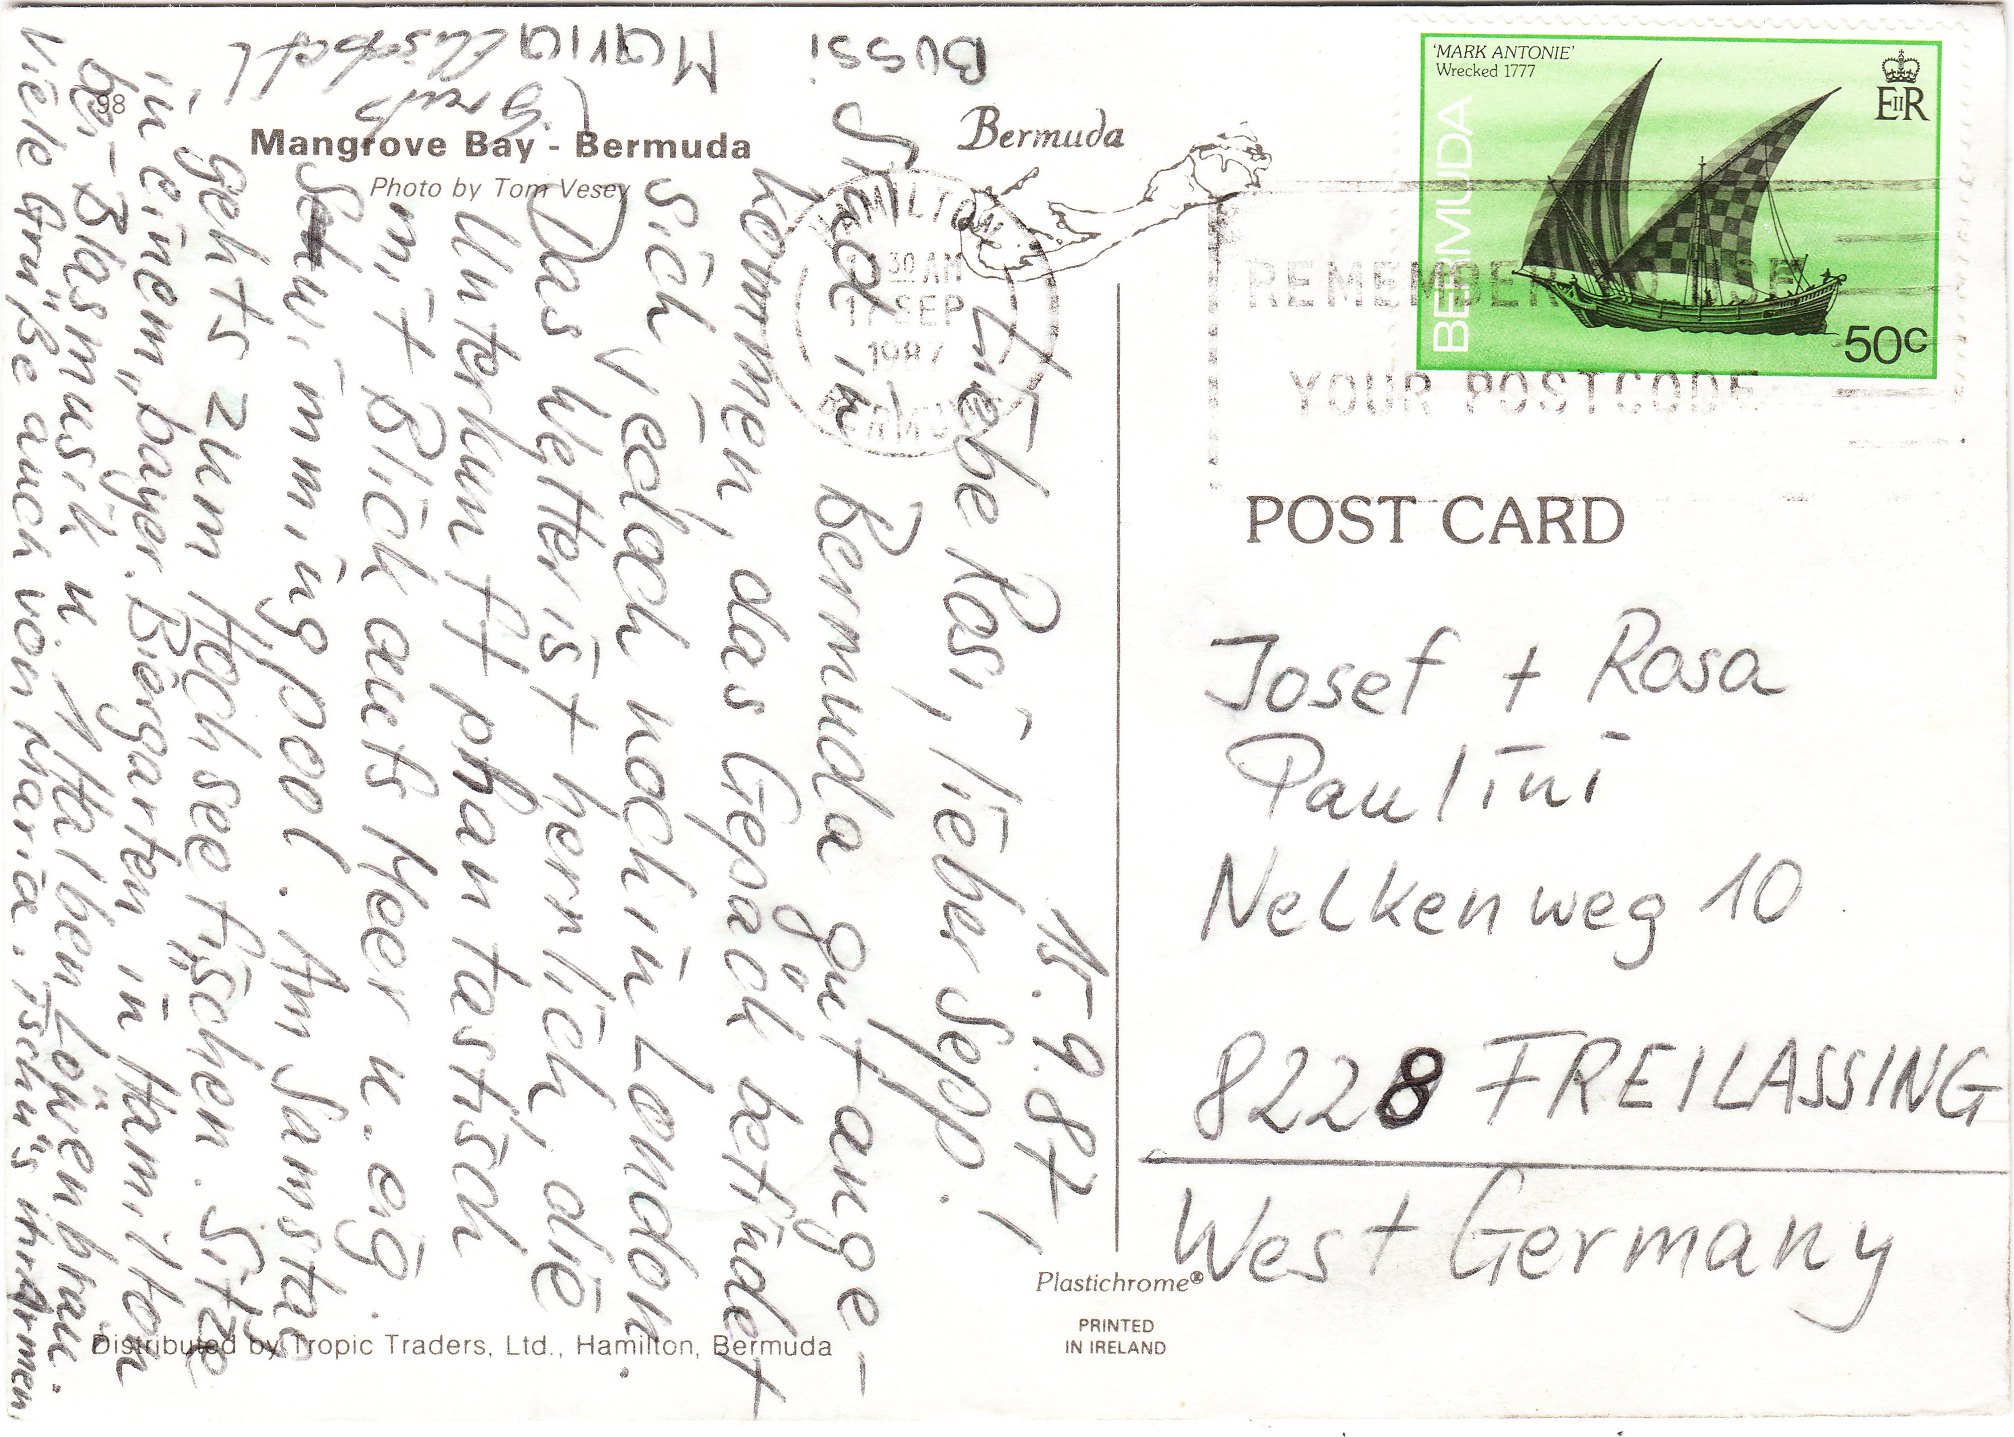 98
Mangrove Bay - Bermuda
Photo by Tom Vesey
Bermuda
HAMILTON
30 AM
17 SEP
1987
BERMUDA
REMEMBER TO USE
YOUR POSTCODE
'MARK ANTONIE'
Wrecked 1777
EIIR
BERMUDA
50c
POST CARD
15.9.87
Liebe Rosi, lieber Sepp!
Sind in Bermuda gut ange-
kommen, das Gepäck befindet
sich jedoch noch in London.
Das Wetter ist herrlich, die
Unterkunft phantastisch
mit Blick aufs Meer u. eig.
Swimmingpool. Am Samstag
gehts zum Hochseefischen. Sitze
in einem "bayer. Biergarten" in Hamilton
bei Blasmusik u. 1 Halben Löwenbräu.
Viele Grüße auch von Maria. Tschüs ihr Armen
Gruß
Elisabeth
Bussi
Maria
Josef + Rosa
Paulini
Nelkenweg 10
8228 FREILASSING
West Germany
Plastichrome®
PRINTED
IN IRELAND
Distributed by Tropic Traders, Ltd., Hamilton, Bermuda